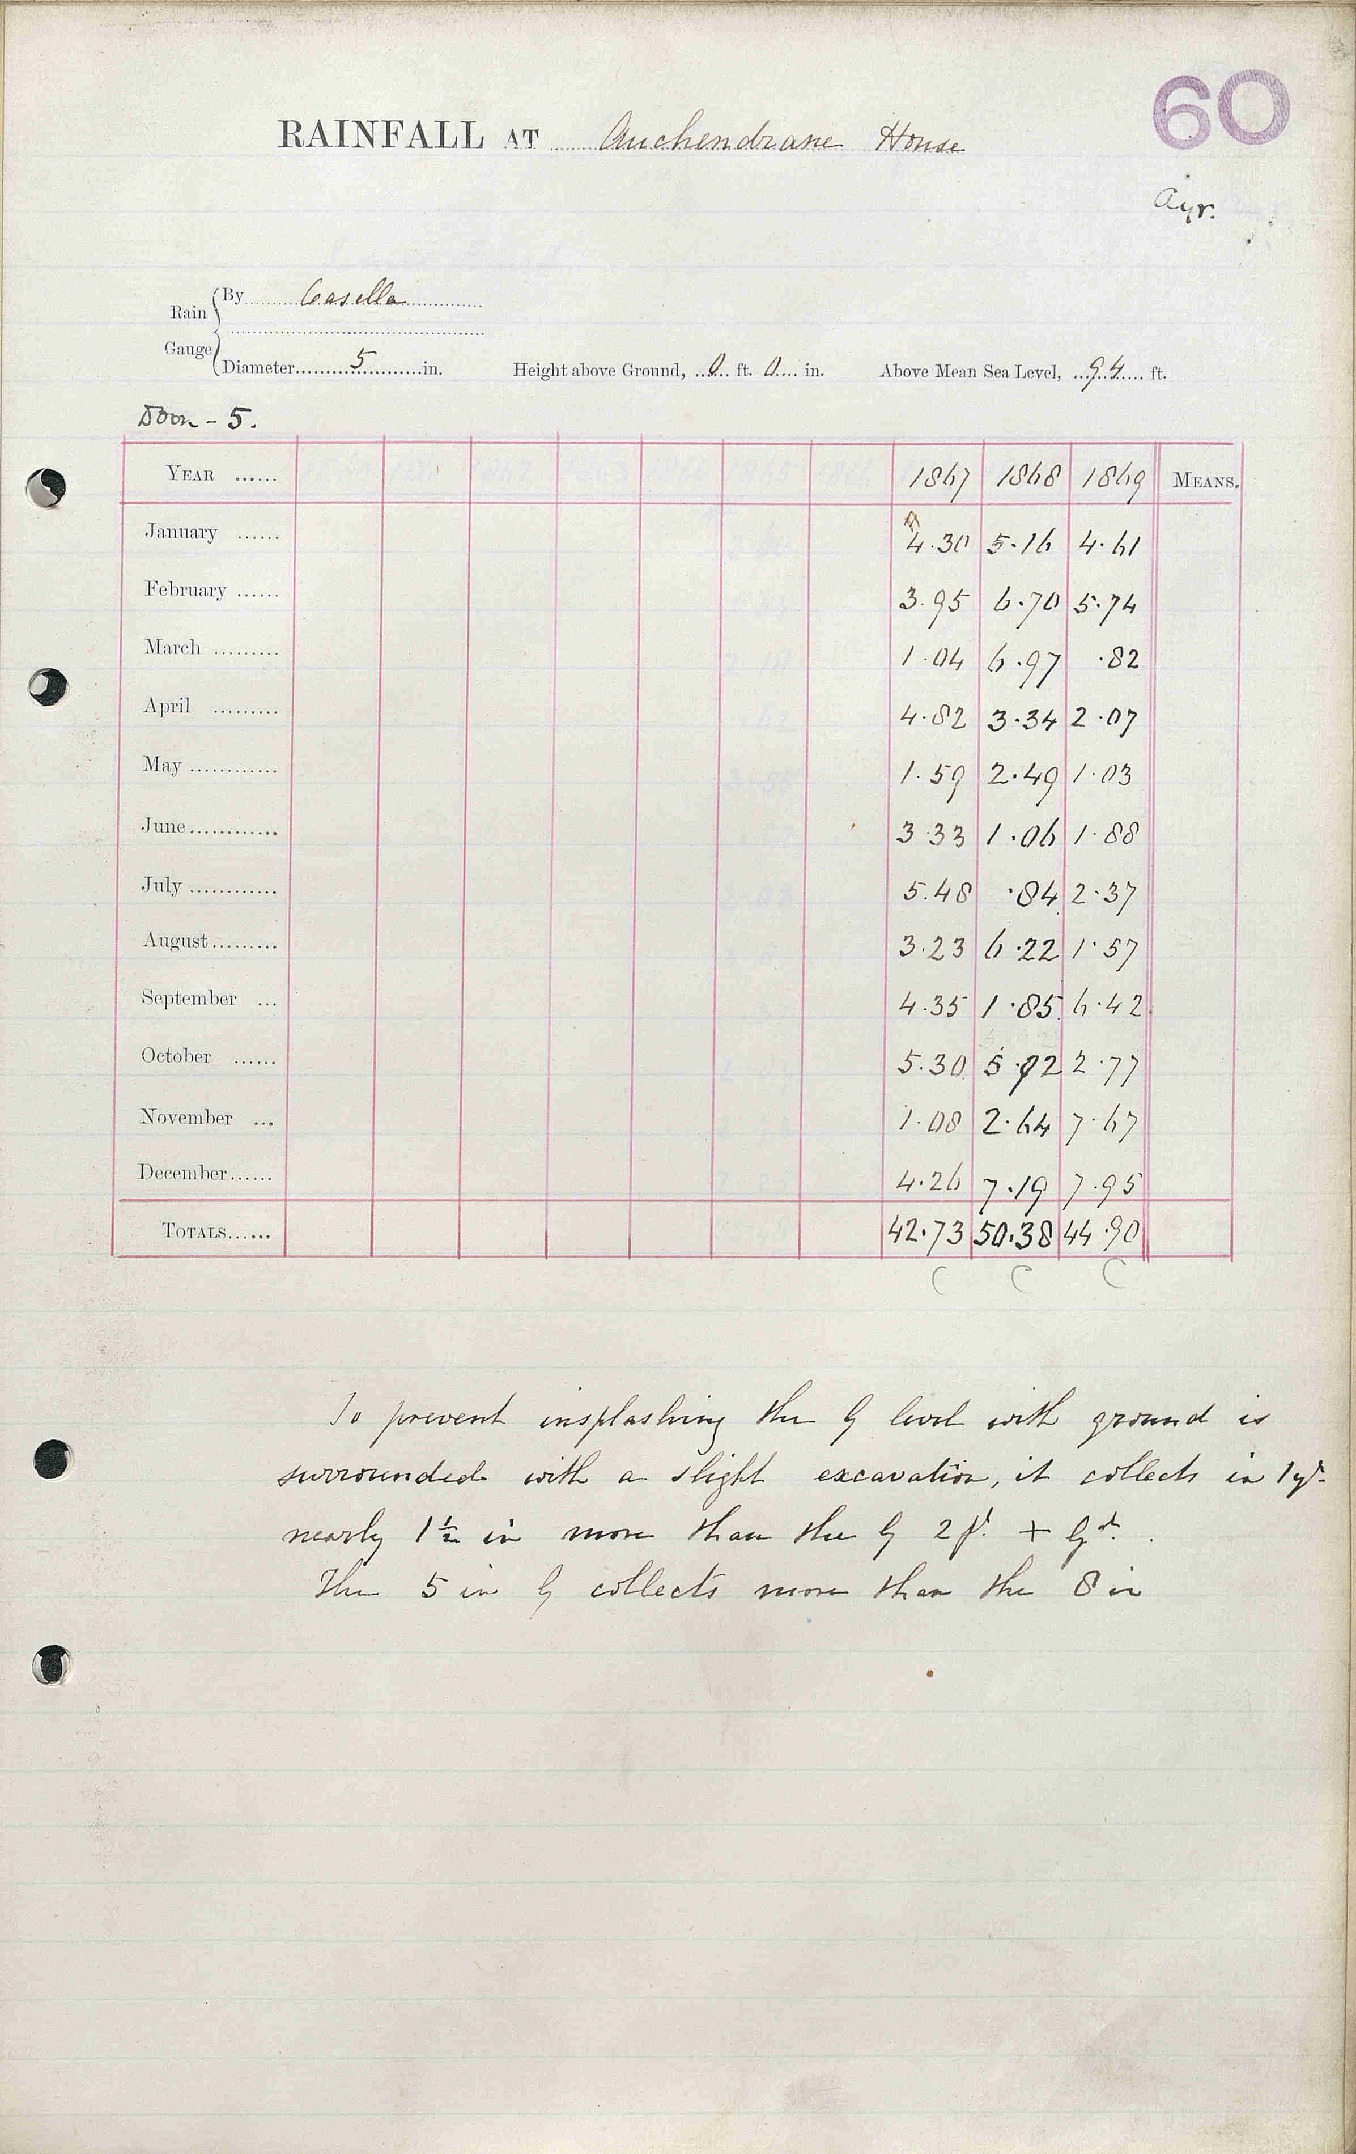 60
RAINFALL AT Auchendrane House
Ayr.
Rain Gauge
By Casella
Diameter 5 in. Height above Ground, 0 ft. 0 in. Above Mean Sea Level, 94 ft.
Doon - 5.
YEAR ...... 1867 1868 1869 MEANS.
January ...... 4.30 5.16 4.61
February ...... 3.95 6.70 5.74
March ......... 1.04 6.97 .82
April ......... 4.82 3.34 2.07
May ............ 1.59 2.49 1.03
June ............ 3.33 1.06 1.88
July ............ 5.48 .84 2.37
August ......... 3.23 6.22 1.57
September ... 4.35 1.85 6.42
October ...... 5.30 5.92 2.77
November ... 1.08 2.64 7.67
December ...... 4.26 7.19 7.95
TOTALS ...... 42.73 50.38 44.90
To prevent insplashing the G level with ground is
surrounded with a slight excavation, it collects in 1 yr.
nearly 1½ in more than the G 2 ft. + Gd.
The 5 in G collects more than the 8 in